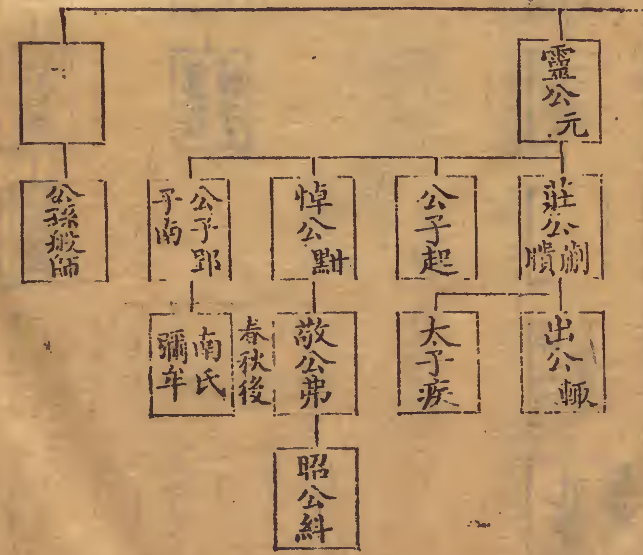 靈公元
莊公蒯聵
公子起
悼公黚
公子郢
子南
公孫般師
出公輒
太子疾
春秋後
敬公弗
南氏
彌牟
昭公糾